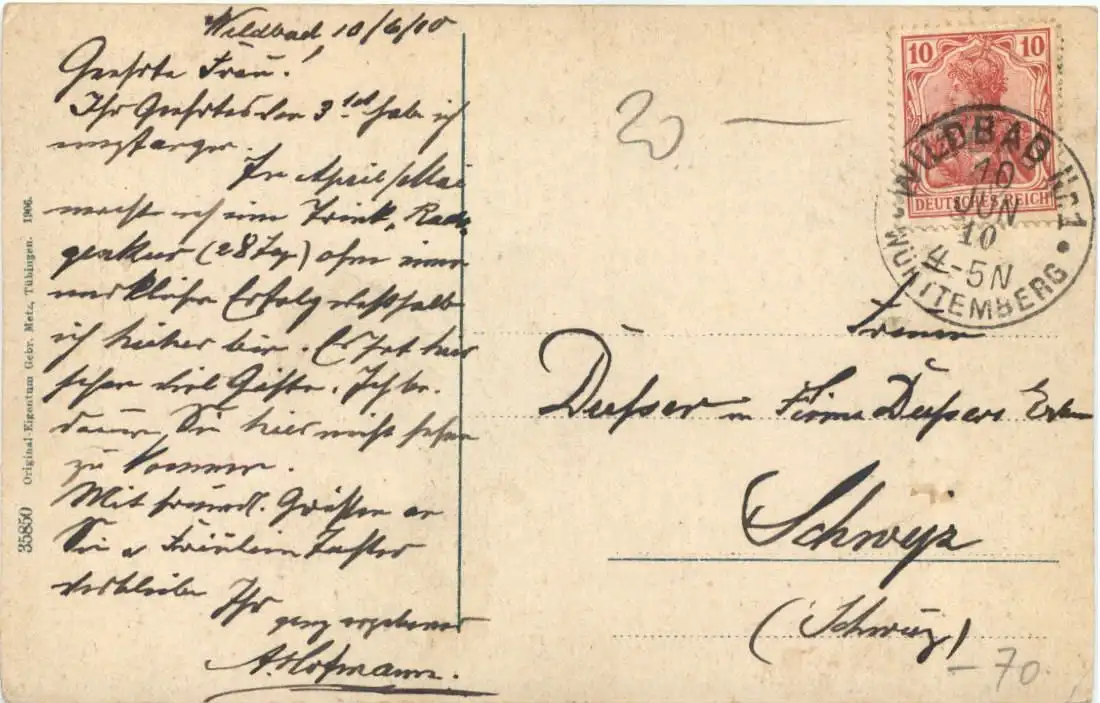 Wildbad 10/6/10
Geehrte Frau!
Ihr Geehrtes vom 3ten habe ich
empfangen.
Im April/Mai
macht ich eine Trink, Bade,
(28 Tag) ohne einen
merklichen Erfolg weßhalb
ich hieher bin. Es hat hier
schon viel Gäste. Ich be-
daure, Sie hier nicht sehen
zu können.
Mit freundl. Grüssen an
Sie & Fräulein Tochter
verbleibe Ihr
ganz ergebener
A. Hofmann.
35850 Original-Eigentum Gebr. Metz, Tübingen. 1906.
10 10
DEUTSCHES REICH
WILDBAD Nr. 1
10
JUN
10
4-5N
WÜRTTEMBERG
20 —
Düsser Firma Düssers Erben
Schwyz
(Schweiz)
- 70